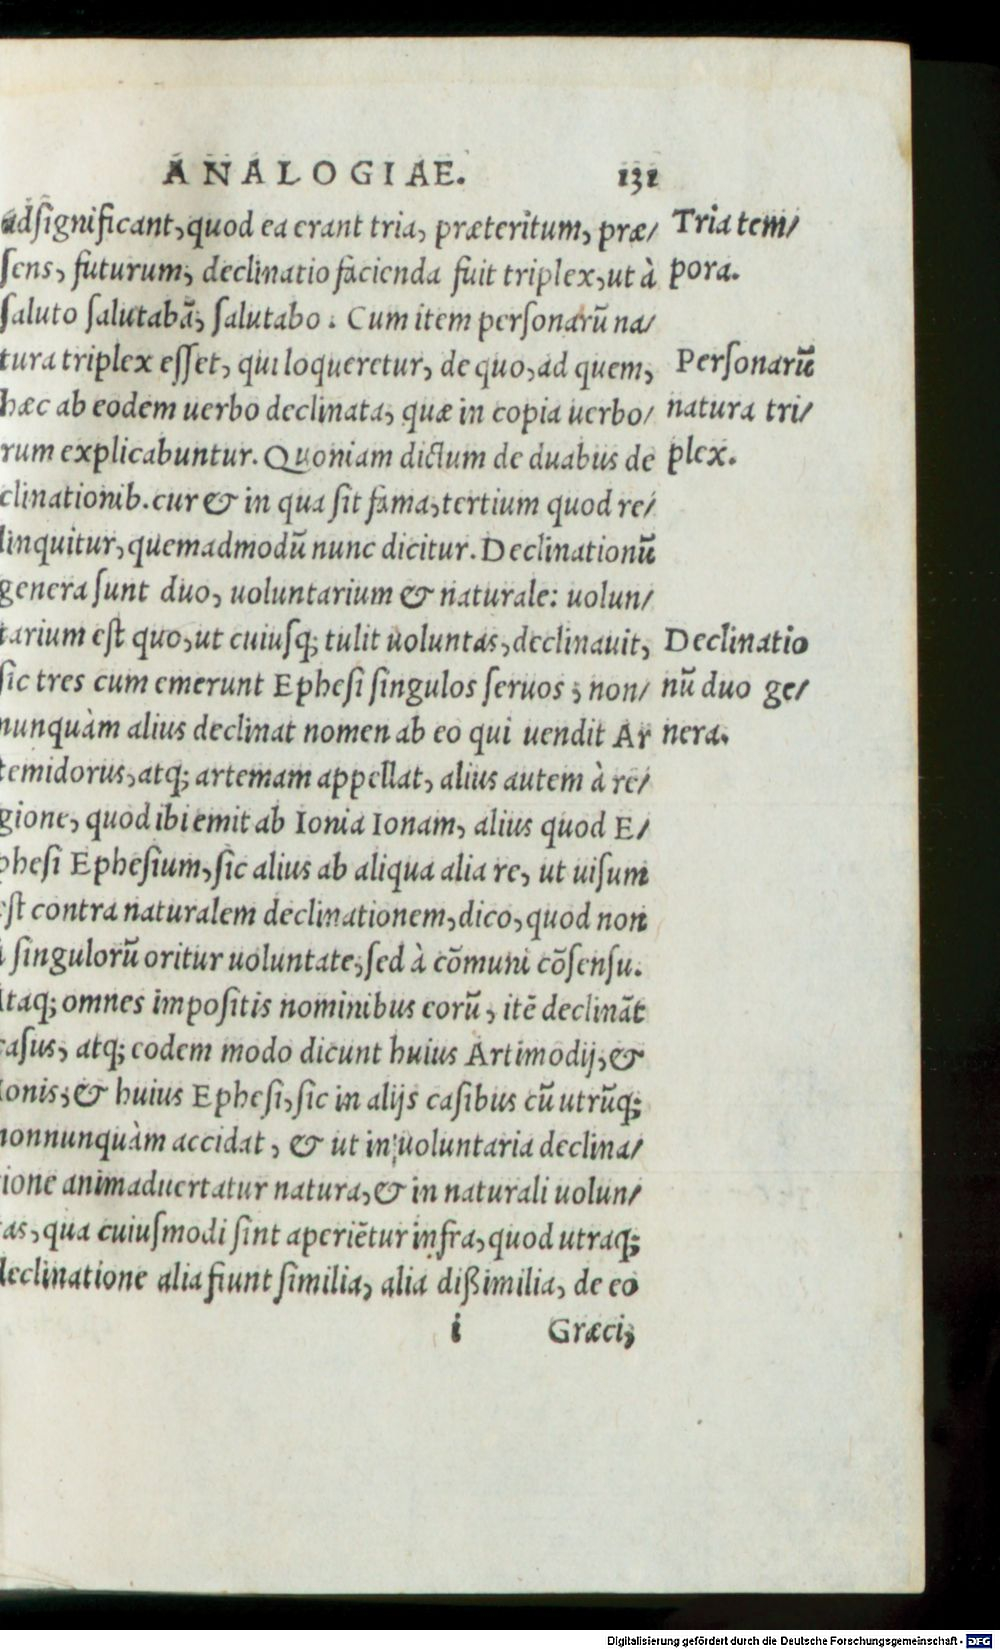 ANALOGIAE. 131
adſignificant, quod ea erant tria, præteritum, præ/
ſens, futurum, declinatio facienda fuit triplex, ut à
ſaluto ſalutabã, ſalutabo. Cum item perſonarũ na/
tura triplex eſſet, qui loqueretur, de quo, ad quem,
hæc ab eodem uerbo declinata, quæ in copia uerbo/
rum explicabuntur. Quoniam dictum de duabus de
clinationib. cur & in qua ſit fama, tertium quod re/
linquitur, quemadmodũ nunc dicitur. Declinationũ
genera ſunt duo, uoluntarium & naturale: uolun/
tarium eſt quo, ut cuiuſq; tulit uoluntas, declinauit,
ſic tres cum emerunt Epheſi ſingulos ſeruos; non/
nunquàm alius declinat nomen ab eo qui uendit Ar
temidorus, atq; artemam appellat, alius autem à re/
gione, quod ibi emit ab Ionia Ionam, alius quod E/
pheſi Epheſium, ſic alius ab aliqua alia re, ut uiſum
eſt contra naturalem declinationem, dico, quod non
à ſingulorũ oritur uoluntate, ſed à cõmuni cõſenſu.
Itaq; omnes impoſitis nominibus eorũ, itẽ declinãt
caſus, atq; eodem modo dicunt huius Artimodij, &
Ionis, & huius Epheſi, ſic in alijs caſibus cũ utrũq;
nonnunquàm accidat, & ut in uoluntaria declina/
tione animaduertatur natura, & in naturali uolun/
tas, qua cuiuſmodi ſint aperiẽtur infra, quod utraq;
declinatione alia fiunt ſimilia, alia dißimilia, de eo
i Græci,
Tria tem/
pora.
Perſonarũ
natura tri/
plex.
Declinatio
nũ duo ge/
nera.
Digitalisierung gefördert durch die Deutsche Forschungsgemeinschaft - DFG